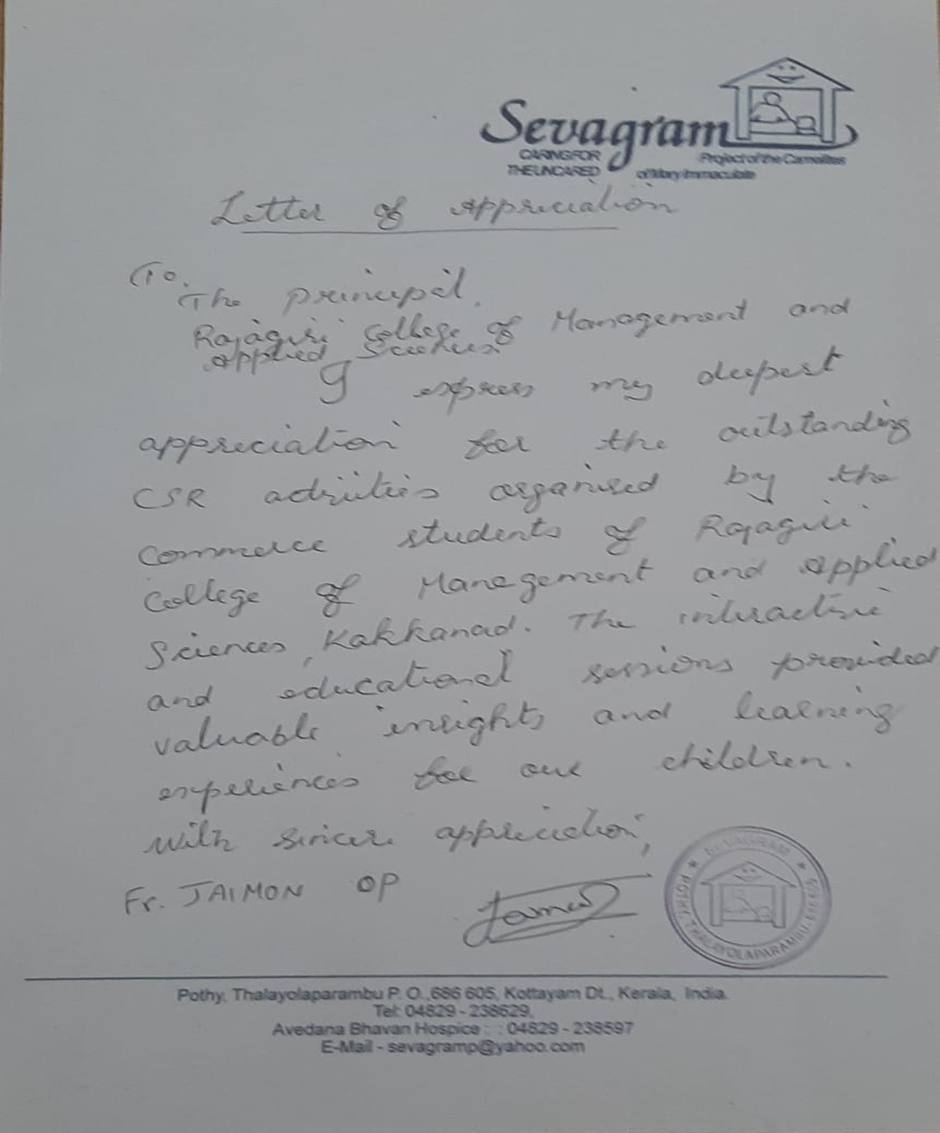 Sevagram
CARING FOR
THE UNCARED
Project of the Carmelites
of Mary Immaculate
Letter of Appreciation
To,
The principal,
Rajagiri College of Management and
Applied Sciences
I express my deepest
appreciation for the outstanding
CSR activities organised by the
Commerce students of Rajagiri
College of Management and Applied
Sciences, Kakkanad. The interactive
and educational sessions provided
valuable insights and learning
experiences for our children.
With sincere appreciation,
Fr. JAIMON OP
SEVAGRAM
POTHY, THALAYOLAPARAMBU
Pothy, Thalayolaparambu P. O.,686 605, Kottayam Dt., Kerala, India.
Tel: 04829 - 238629,
Avedana Bhavan Hospice : : 04829 - 238597
E-Mail - sevagramp@yahoo.com